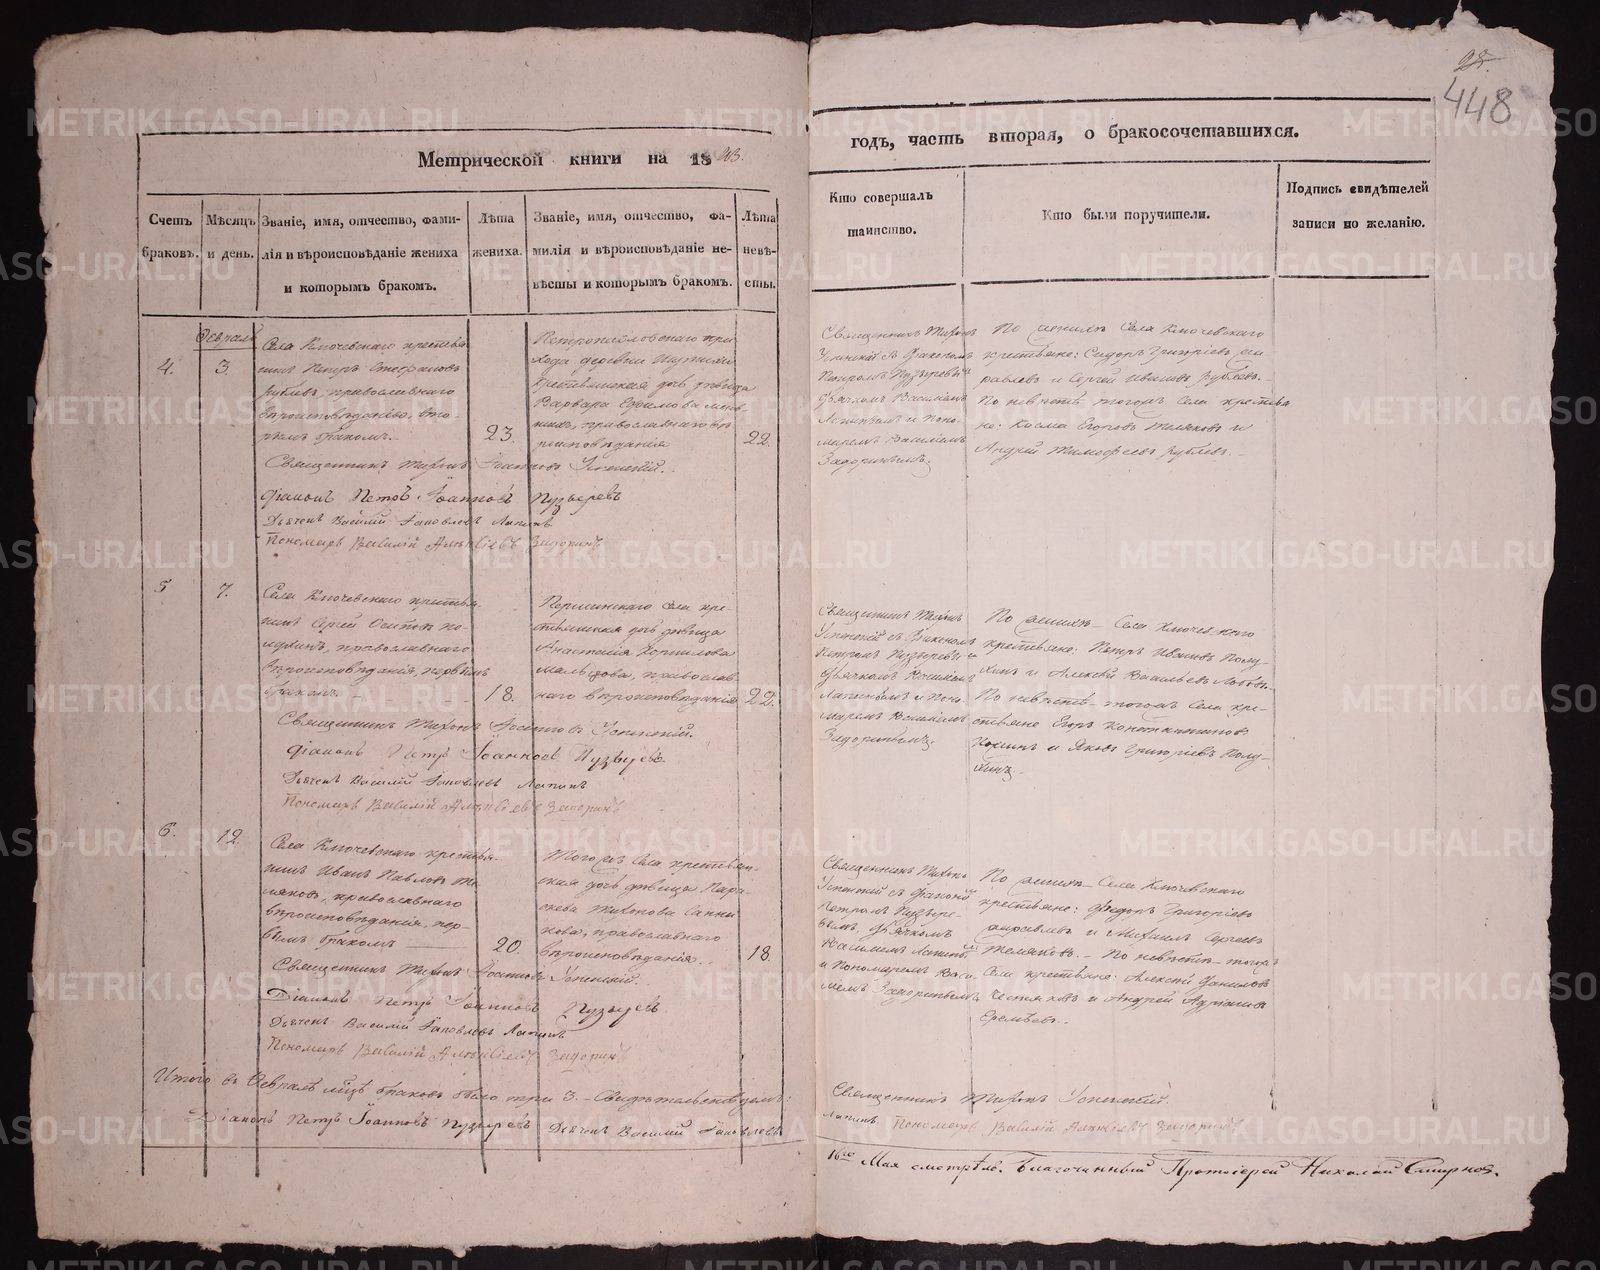 448
Метрической книги на 18
годъ, часть вторая, о бракосочетавшихся.
Счетъ браковъ.
Мѣсяцъ и день.
Званіе, имя, отчество, фами-
лія и вѣроисповѣданіе жениха
и которымъ бракомъ.
Лѣта
жениха.
Званіе, имя, отчество, фа-
милія и вѣроисповѣданіе не-
вѣсты и которымъ бракомъ.
Лѣта
невѣ-
сты.
Кто совершалъ
таинство.
Кто были поручители.
Подпись свидѣтелей
записи по желанію.
4.
Февраля
3.
Села Ключевскаго крестья-
нинъ Петръ Стефановъ
Рублевъ, православнаго
вѣроисповѣданія, вто-
рымъ бракомъ.
23.
Петропавловскаго при-
хода деревни
крестьянская дочь дѣвица
Варвара Ефимова
православнаго вѣ-
роисповѣданія
22.
Священникъ Тихонъ
Успенскій съ Діакономъ
Петромъ Пузыревымъ
Дьячкомъ Василіемъ
Лапинымъ и Поно-
маремъ Василіемъ
Задоринымъ.
По женихѣ Села Ключевскаго
крестьяне: Сидоръ Григорьевъ
и Сергѣй Ивановъ Рублевъ.
По невѣстѣ тогожъ Села крестья
не: Косма Егоровъ Теляковъ и
Андрей Тимофеевъ Рублевъ.
Священникъ Тихонъ Іоанновъ Успенскій.
Діаконъ Петръ Іоанновъ Пузыревъ
Дьячекъ Василій Іаковлевъ Лапинъ
Пономарь Василій Алексіевъ Задоринъ
5
7.
Села Ключевскаго крестья-
нинъ Сергѣй Осиповъ По-
лухинъ, православнаго
вѣроисповѣданія, первымъ
бракомъ.
18.
Першинскаго села кре-
стьянская дочь дѣвица
Анастасія Корнилова
православ-
наго вѣроисповѣданія
22.
Священникъ Тихонъ
Успенскій съ Діакономъ
Петромъ Пузыревымъ
Дьячкомъ Василіемъ
Лапинымъ и Поно-
маремъ Василіемъ
Задоринымъ
По женихѣ Села Ключевскаго
крестьяне: Петръ Ивановъ Полу-
хинъ и Алексѣй Васильевъ
По невѣстѣ тогожъ Села кре-
стьяне Егоръ Константиновъ
и Яковъ Григорьевъ Полу-
хинъ
Священникъ Тихонъ Іоанновъ Успенскій.
Діаконъ Петръ Іоанновъ Пузыревъ
Дьячекъ Василій Іаковлевъ Лапинъ
Пономарь Василій Алексіевъ Задоринъ
6.
12.
Села Ключевскаго крестья-
нинъ Иванъ Павловъ Те-
ляковъ, православнаго
вѣроисповѣданія, пер-
вымъ бракомъ
20.
Тогожъ Села крестьян-
ская дочь дѣвица Пара-
скева Тихонова Санни-
кова, православнаго
вѣроисповѣданія.
18.
Священникъ Тихонъ
Успенскій съ Діакономъ
Петромъ Пузыре-
вымъ, Дьячкомъ
Василіемъ Лапинымъ
и Пономаремъ Васи-
ліемъ Задоринымъ
По женихѣ Села Ключевскаго
крестьяне: Ѳедоръ Григорьевъ
и Михаилъ Сергѣевъ
Теляковъ. По невѣстѣ тогожъ
Села крестьяне: Алексѣй Даниловъ
и Андрей Адріановъ
Еремѣевъ.
Священникъ Тихонъ Іоанновъ Успенскій.
Діаконъ Петръ Іоанновъ Пузыревъ
Дьячекъ Василій Іаковлевъ Лапинъ
Пономарь Василій Алексіевъ Задоринъ
Итого въ Февралѣ м҃цѣ браковъ было три 3. Свидѣтельствуемъ:
Священникъ Тихонъ Успенскій.
Діаконъ Петръ Іоанновъ Пузыревъ Дьячекъ Василій Іаковлевъ
Лапинъ. Пономарь Василій Алексіевъ Задоринъ
16го Мая смотрѣлъ. Благочинный Протоіерей Николай Смирновъ.
METRIKI.GASO-URAL.RU